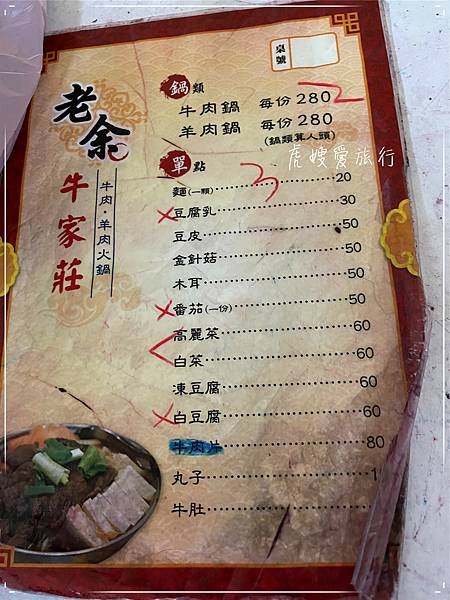 桌號
老余
牛家莊
牛肉·羊肉火鍋
鍋類
牛肉鍋 每份 280 2
羊肉鍋 每份 280
(鍋類算人頭)
虎嫂愛旅行
單點
麵(一顆) 20 3
豆腐乳 30
豆皮 50
金針菇 50
木耳 50
番茄(一份) 50
高麗菜 60
白菜 60
凍豆腐 60
白豆腐 60
牛肉片 80
丸子 1
牛肚